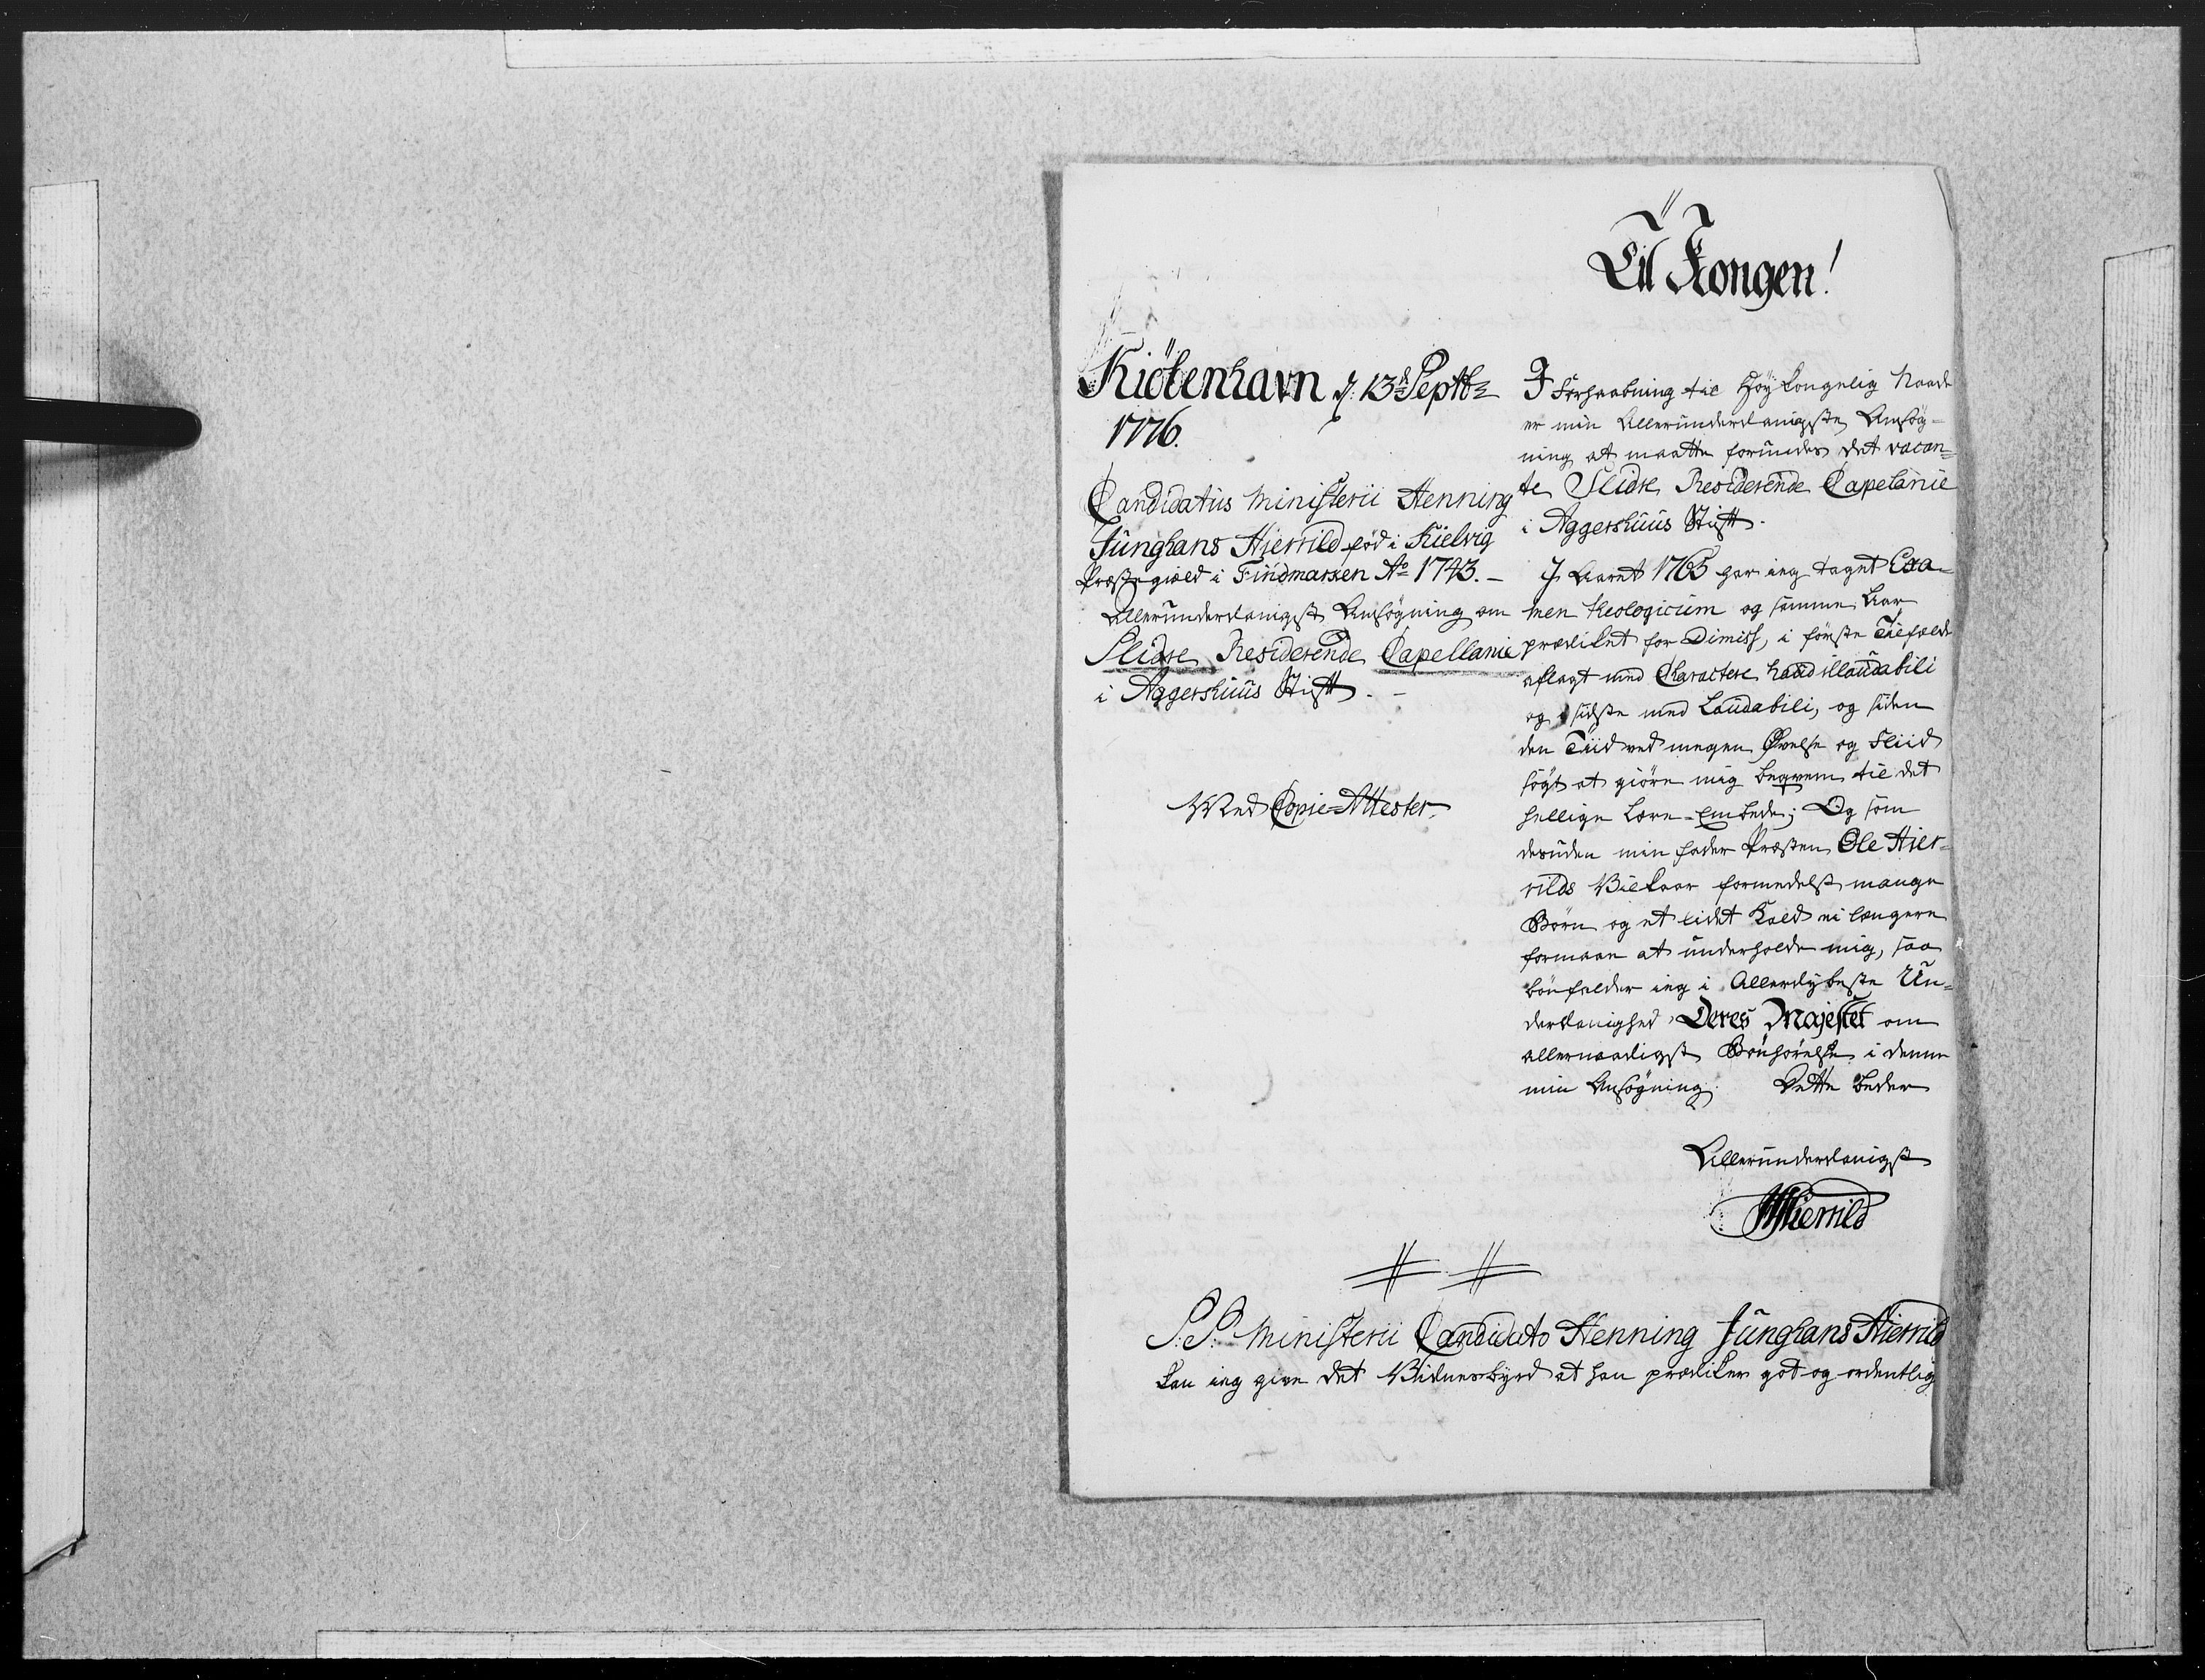 Til Kongen!
Kiöbenhavn d: 13de Septbr
1776.
Candidatus Ministerii Henning
Junghans Hierrild fød i Kielvig
Præstegield i Findmarken Ao 1743. -
Allerunderdanigst Ansögning om
Slidre Residerende Capellanie
i Aggershuus Stift. -
Med Copie-Attester.
I Forhaabning til Høy Kongelig Naade
er min Allerunderdanigste Ansög=
ning at maatte forundes det vacan=
te Slidre Residerende Capelanie
i Aggershuus Stift.
I Aaret 1765 har ieg taget Exa=
men theologicum og samme Aar
prædiket for Dimiss, i første Tilfælde
aflagt med Charactere haud illaudabili
og i sidste med Laudabili, og siden
den Tiid ved megen Øvelse og Fliid
søgt at giöre mig beqvem til det
hellige Lære-Embede; Og som
desuden min fader Præsten Ole Hier=
rilds Vilkaar formedelst mange
Börn og et lidet Kald ei længere
formaar at underholde mig, saa
bönfalder ieg i Allerdybeste Un=
derdanighed Deres Majestet om
allernaadigst Bönhörelse i denne
min Ansögning. Dette beder
Allerunderdanigst
HHierrild
S: S: Ministerii Candidato Henning Junghans Hierrild
kan ieg give det Vidnesbyrd at han prædiker got og ordentlig